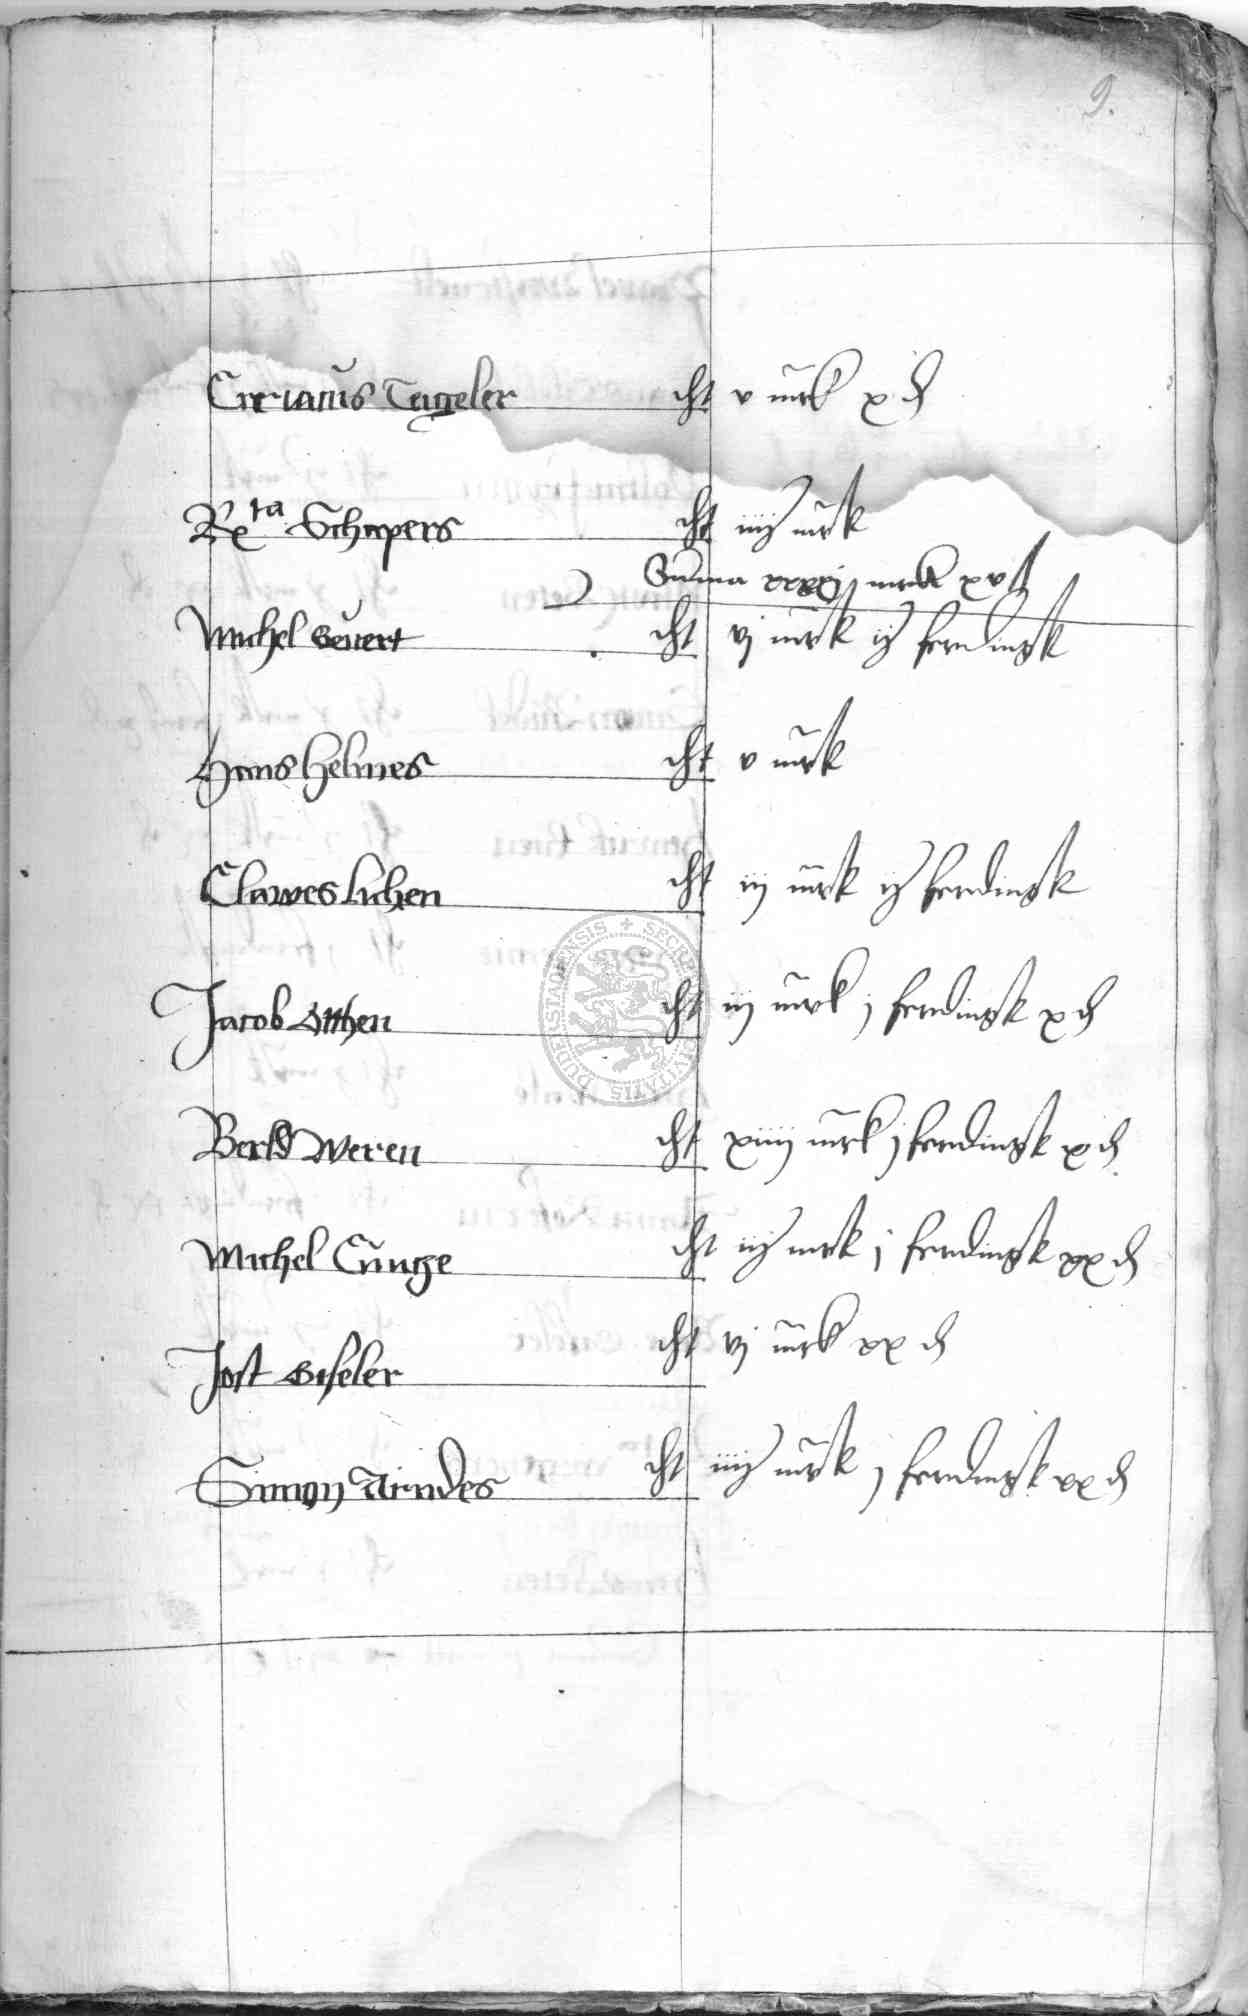 9.
Ciriacus Tegeler cht v mrk x d
Rx ta Schapers cht iiij mrk
Summa xxxxij mrk xv ß
Michel Gevert cht vj mrk ij ferdingk
Hans Helmes cht v mrk
Clawes Lichen cht iij mrk ij ferdingk
Jacob Otthen cht iij mrk j ferdingk x d
Berld Weren cht xiiij mrk j ferdingk x d
Michel Cuntze cht iij mrk j ferdingk xx d
Jost Giseler cht vj mrk xx d
Simon Arndes cht iiij mrk j ferdingk xx d
SECRET CIVITATIS DUDERSTADENSIS